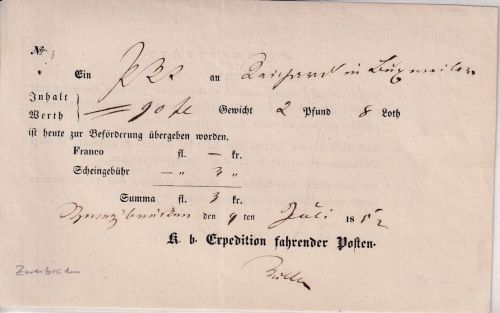 № 3
Ein PRS an Reichard in Buxweiler
Inhalt
Werth } 90 fl Gewicht 2 Pfund 8 Loth
ist heute zur Beförderung übergeben worden.
Franco fl. — kr.
Scheingebühr — „ 3 „
Summa fl. 3 kr.
Zweybrücken den 9 ten Juli 1852
K. b. Expedition fahrender Posten.
Zweibrücken